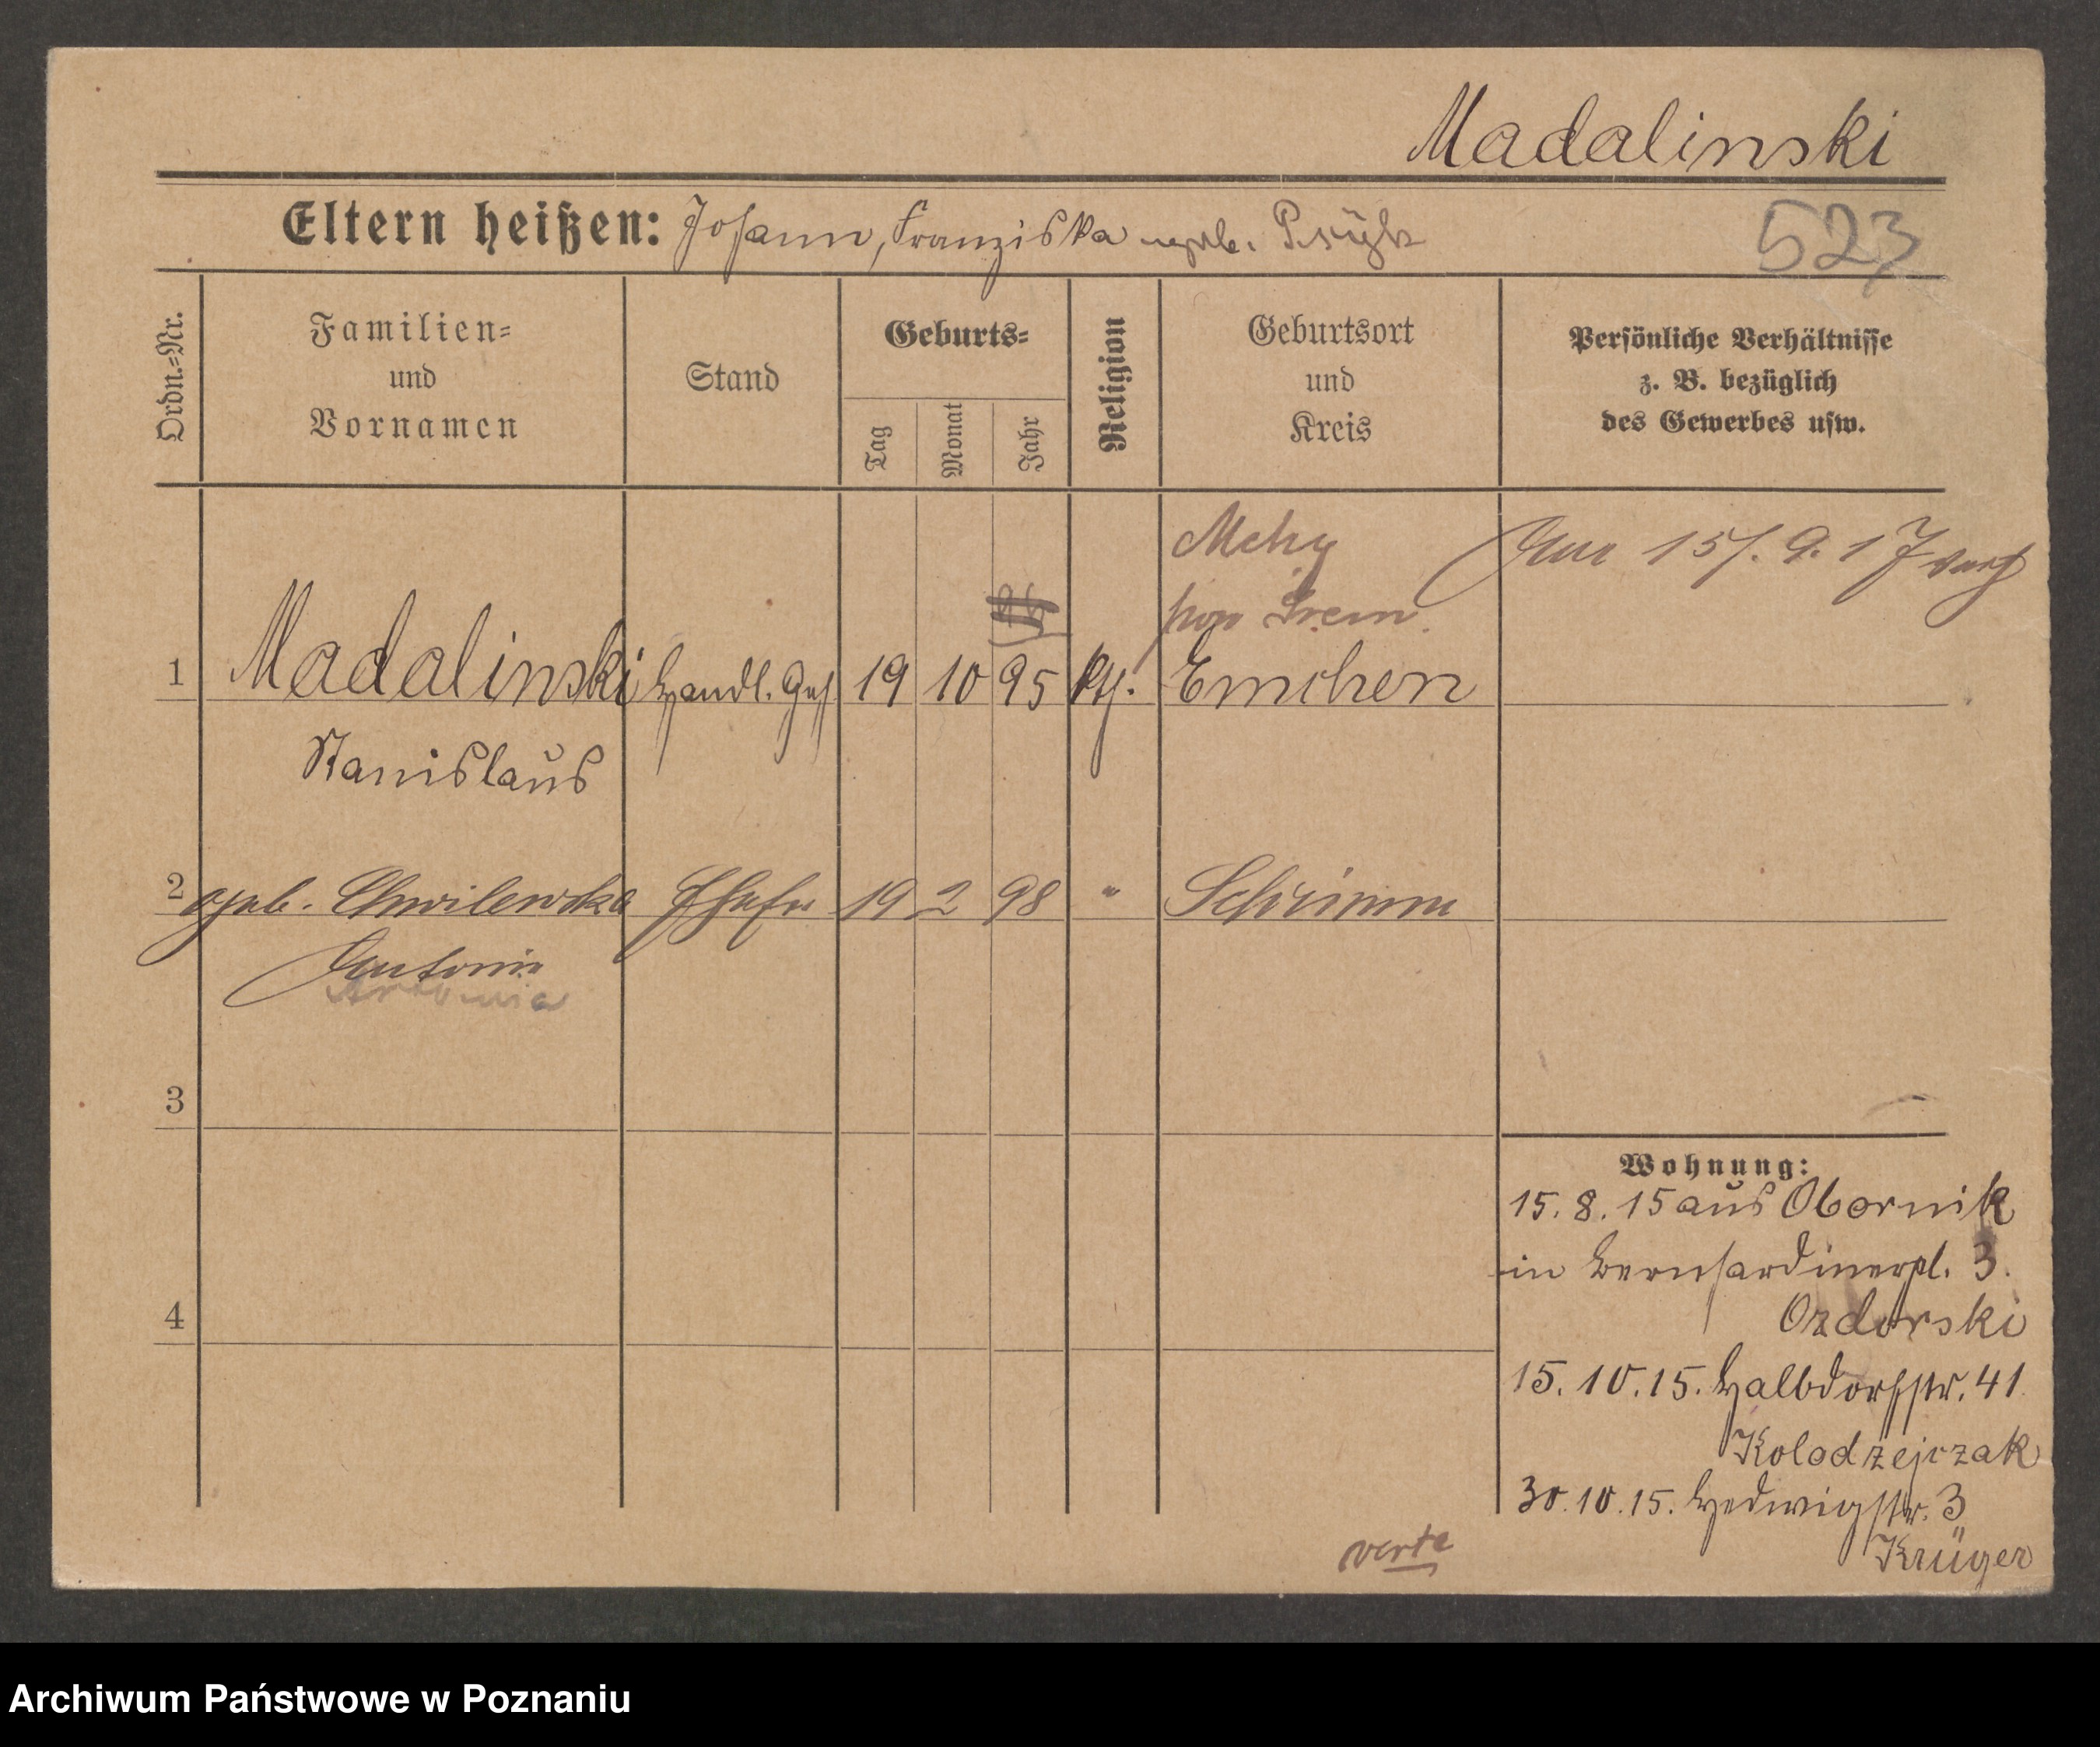 Madalinski
Eltern heißen: Johann, Franziska geb.
523
Ordn.-Nr.
Familien-
und
Vornamen
Stand
Geburts-
Tag
Monat
Jahr
Religion
Geburtsort
und
Kreis
Persönliche Verhältnisse
z. B. bezüglich
des Gewerbes usw.
15. 9. 17
pow Srem
1 Madalinski Handl. Geh 19 10 95 kth. Emchen
Stanislaus
2 geb. Chwilewska Ehefr 19 2 98 " Schrimm
Antonie
Antonia
3
4
Wohnung:
15. 8. 15 aus Obornik
in Bernhardinerpl. 3.
Ozdorski
15. 10. 15. Halbdorfstr. 41
Kolodzejczak
30. 10. 15. Hedwigstr. 3
Krüger
verte
Archiwum Państwowe w Poznaniu